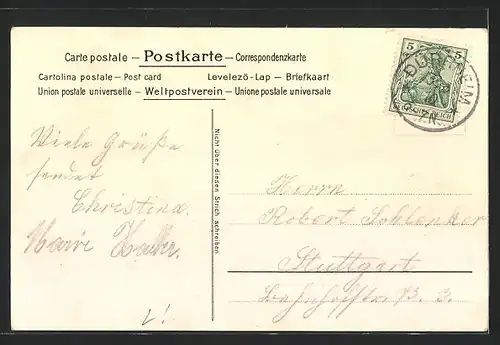 Carte postale — Postkarte — Correspondenzkarte
Cartolina postale — Post card Levelezö-Lap — Briefkaart
Union postale universelle — Weltpostverein — Unione postale universale
5 5
DEUTSCHES REICH
Nicht über diesen Strich schreiben
Viele Grüße
sendet
Christina.
Marie
Herrn
Robert Schlenker
Stuttgart
Bahnhofstr. 3.